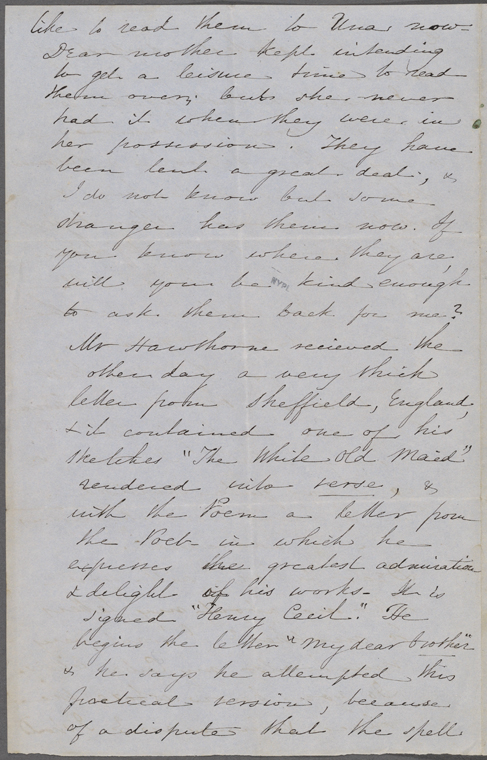 like to read them to Una now -
Dear mother kept intending
to get a leisure time to read
them over; but she never
had it when they were in
her possession. They have
been lent a great deal, &
I do not know but some
stranger has them now. If
you know where they are,
will you be kind enough
to ask them back for me?
Mr Hawthorne recieved the
other day a very thick
letter from Sheffield, England,
& it contained one of his
sketches "The White Old Maid"
rendered into verse, &
with the Poem a letter from
the Poet in which he
expresses the greatest admiration
& delight of his works - It is
signed "Henry Cecil." He
begins the letter "my dear brother"
& he says he attempted this
poetical version, because
of a dispute that the spell